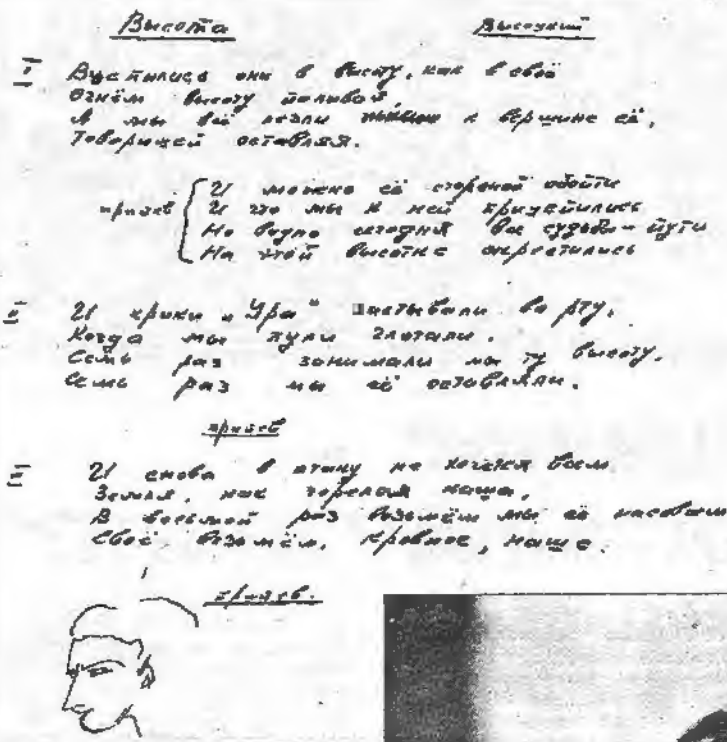 Высота Высоцкий
I Вцепились они в высоту, как в своё
Огнём высоту поливая,
А мы всё лезли к вершине её,
Товарищей оставляя.
припев И можно её стороной обойти
И что мы к ней прицепились
Но видно сегодня все судьбы-пути
На этой высотке скрестились
II И крики „Ура" застывали во рту,
Когда мы пули глотали.
Семь раз занимали мы ту высоту,
Семь раз мы её оставляли.
припев
III И снова в атаку не хочется всем
Земля, как горелая каша,
В восьмой раз возьмём мы её насовсем
Своё возьмём, кровное, наше.
припев.